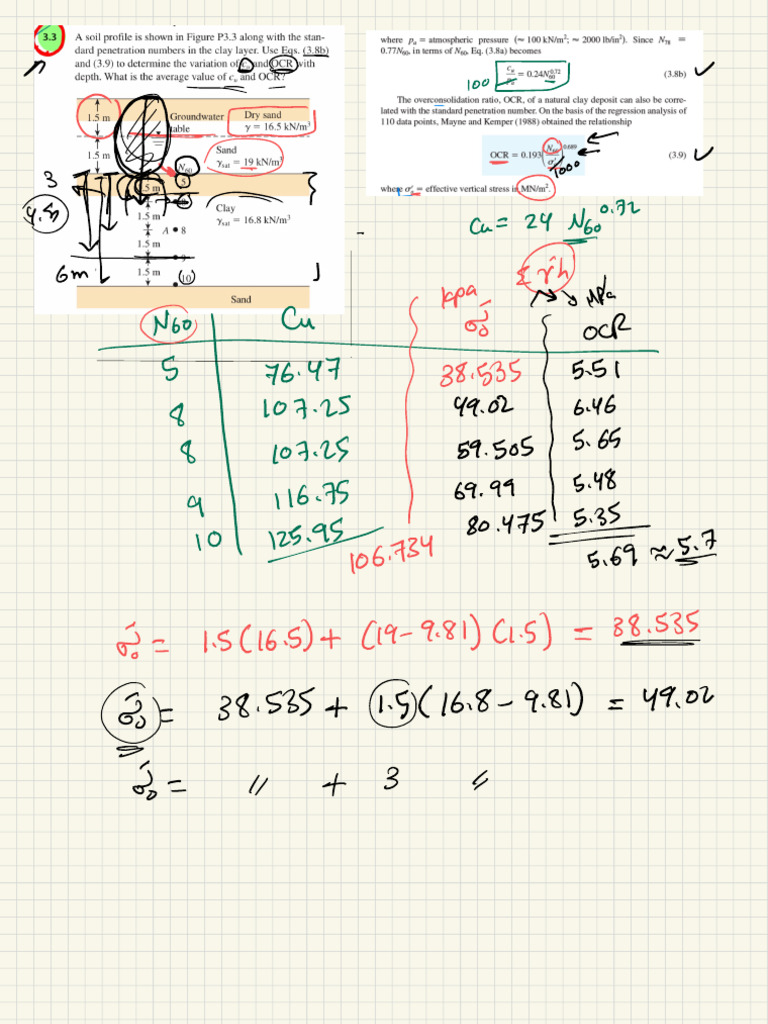 3.3 A soil profile is shown in Figure P3.3 along with the stan-
dard penetration numbers in the clay layer. Use Eqs. (3.8b)
and (3.9) to determine the variation of and OCR with
depth. What is the average value of cu and OCR?
1.5 m
Groundwater table
Dry sand
γ = 16.5 kN/m³
1.5 m
Sand
γsat = 19 kN/m³
N60
5
3
1.5 m
4.5
1.5 m
Clay
γsat = 16.8 kN/m³
A 8
1.5 m
6m
1.5 m
(10)
Sand
where pa = atmospheric pressure (≈ 100 kN/m²; ≈ 2000 lb/in²). Since N70 =
0.77N60, in terms of N60, Eq. (3.8a) becomes
100
cu/pa = 0.24N60^0.72 (3.8b)
The overconsolidation ratio, OCR, of a natural clay deposit can also be corre-
lated with the standard penetration number. On the basis of the regression analysis of
110 data points, Mayne and Kemper (1988) obtained the relationship
OCR = 0.193(N60/σ'o)^0.689 (3.9)
1000
where σ'o = effective vertical stress in MN/m².
Cu = 24 N60^0.72
Σ γ'h
kpa
MPa
N60 Cu σ'o OCR
5 76.47 38.535 5.51
8 107.25 49.02 6.46
8 107.25 59.505 5.65
9 116.75 69.99 5.48
10 125.95 80.475 5.35
106.734
5.69 ≈ 5.7
σ'o = 1.5(16.5) + (19 - 9.81)(1.5) = 38.535
σ'o = 38.535 + 1.5(16.8 - 9.81) = 49.02
σ'o = 〃 + 3 〃